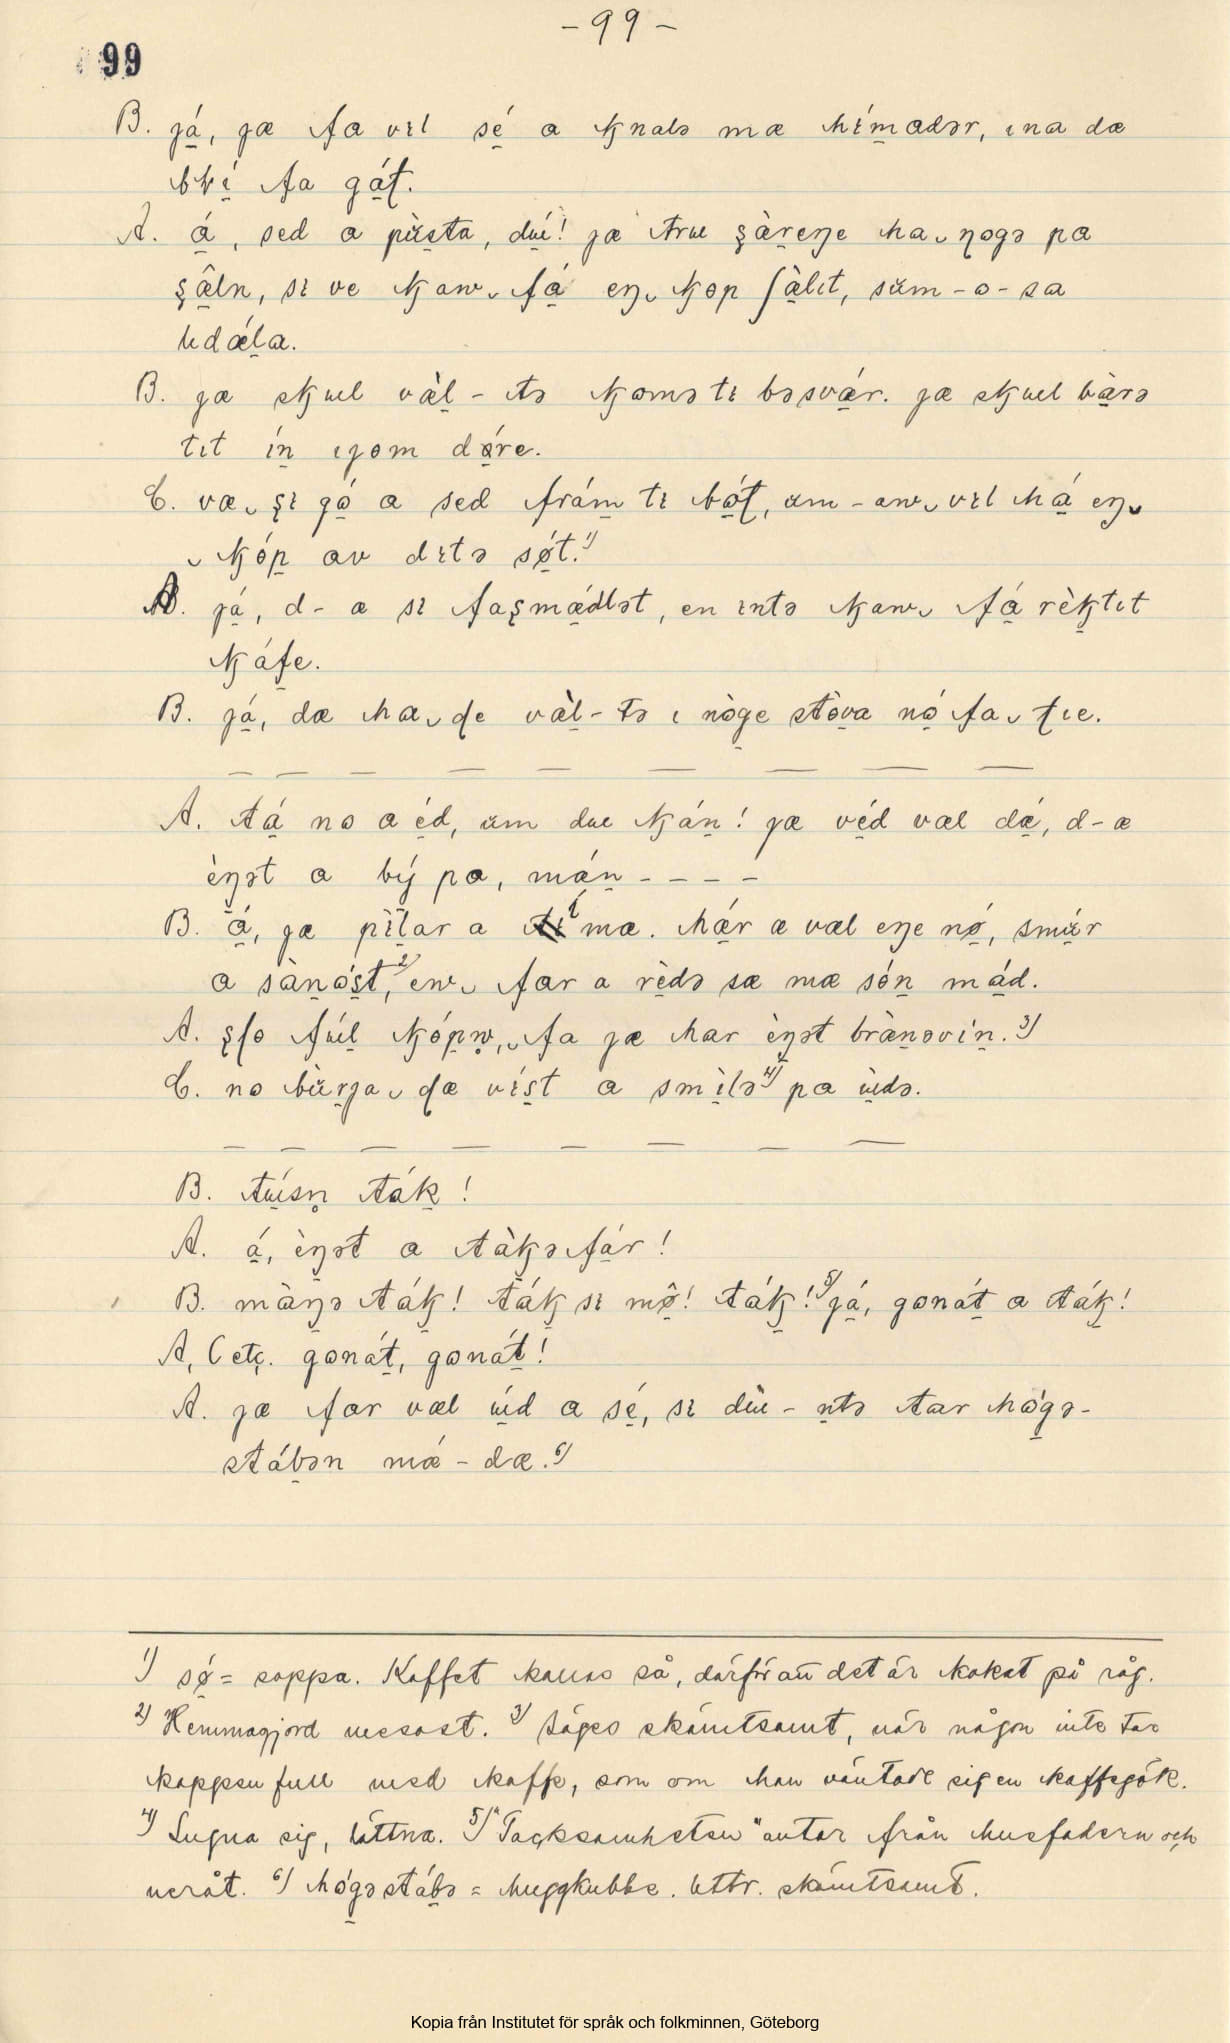 – 99 –
99
B. já̱, jæ fa vɪl sé̱ a ꞣnalə mæ hɪ́m̱adər, ɪna dæ
blɪ̱́ fa gá̱ʈ.
A. á̱, sed a pù̈s̱ta, dú̱! jæ tru ʂæ̀ṟeŋe ha˯ɳogə pa
ʂæ̱̂ln, sɪ ve ꞣaw˯fá̱ eŋ˯ꞣop ʃæ̱̀lɪt, süm-o-sa
udǽḻa.
B. jæ sꞣul væ̀ḻ-tə ꞣomə tɪ bəsvǽ̱r. jæ sꞣul bà̱rə
tɪt íṉ ɪjom dǿ̱re.
C. væ˯ʂɪ gó̱ a sed frám̱ tɪ bó̱ʈ, üm-aw˯vɪl há̱ eŋ˯
˯ꞣóp̱ av dɪtə sǿ̱t.¹⁾
A. já̱, d-æ sɪ faʂmǽ̱dlət, en ɪntə ꞣaw˯fá̱ rèꞣ̱tɪt
ꞣáf̱e.
B. já̱, dæ ha˯ɖe væ̀ḻ-tə ɪ nòg̱e stò̱va nó̱ fa˯ʈɪe.
— — — — — — — — —
A. tá̱ no a é̱d, üm du ꞣáṉ! jæ vé̱d væl dǽ̱, d-æ
èŋ̱ət a bý̱ pa, máṉ – – – –
B. á̱, jæ pɪ̀ḻar a í mæ. hǽ̱r æ væl eŋe nǿ̱, smǘ̱r
a sàṉós̱t,²⁾ ew˯ far a rè̱də sæ mæ sóṉ má̱d.
A. ʂʃo fúḻ ꞣóp̱w̥,˯fa jæ har èŋ̱ət bræ̀ṉəviṉ́.³⁾
C. no bǜṟja˯ɖæ vís̱t a smɪ̱̀lə⁴⁾ pa ù̱də.
— — — — — — — —
B. tú̱sn̥ táḵ!
A. á̱, èŋ̱ət a tàꞣ̱əfá̱r!
B. màŋ̱ə táꞣ̱! táꞣ̱ sɪ mø̱̂! táꞣ̱!⁵⁾ já̱, gonáṯ a táꞣ̱!
A, C etc. gonáṯ, gonáṯ!
A. jæ far væl ú̱d a sé̱, sɪ dù-ṉtə tar hòg̱ə-
stáḇən mǽ-dæ.⁶⁾
¹⁾ sǿ̱ = soppa. Kaffet kallas så, därför att det är kokat på råg.
²⁾ Hemmagjord mesost. ³⁾ Säges skämtsamt, när någon inte tar
koppen full med kaffe, som om han väntade sig en kaffegök.
⁴⁾ Lugna sig, lättna. ⁵⁾ "Tacksamheten" antar från husfadern och
neråt. ⁶⁾ hòg̱əstáḇə = huggkubbe. Uttr. skämtsamt.
Kopia från Institutet för språk och folkminnen, Göteborg